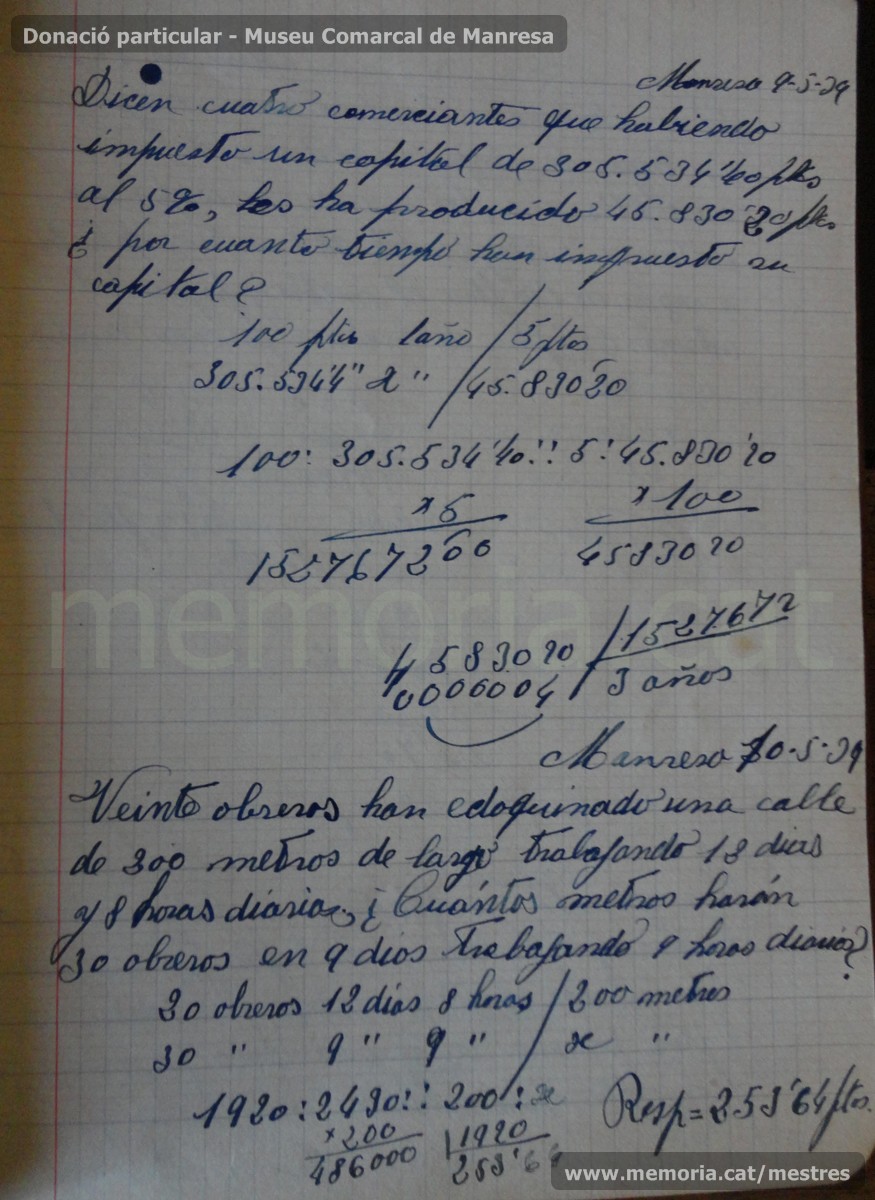 Donació particular - Museu Comarcal de Manresa
Manresa 9-5-39
Dicen cuatro comerciantes que habiendo
impuesto un capital de 305.534'40 pts
al 5%, les ha producido 45.830'20 ptes
¿ por cuanto tiempo han impuesto su
capital?
100 ptes 1año / 5 ptos
305.534'4 " x " / 45.830'20
100: 305.534'40:: 5: 45.830'20
x 5 x 100
152767200 4583020
4583020 / 1527672
0006004 3 años
Manresa 10-5-39
Veinte obreros han edoquinado una calle
de 200 metros de largo trabajando 12 dias
y 8 horas diarias, ¿Cuántos metros harán
30 obreros en 9 dias trabajando 9 horas diarias?
20 obreros 12 dias 8 horas / 200 metres
30 " 9 " 9 " / x "
1920:2430::200:x Resp=253'64 ptos.
x200 1920
486000 253'6
memoria.cat
www.memoria.cat/mestres